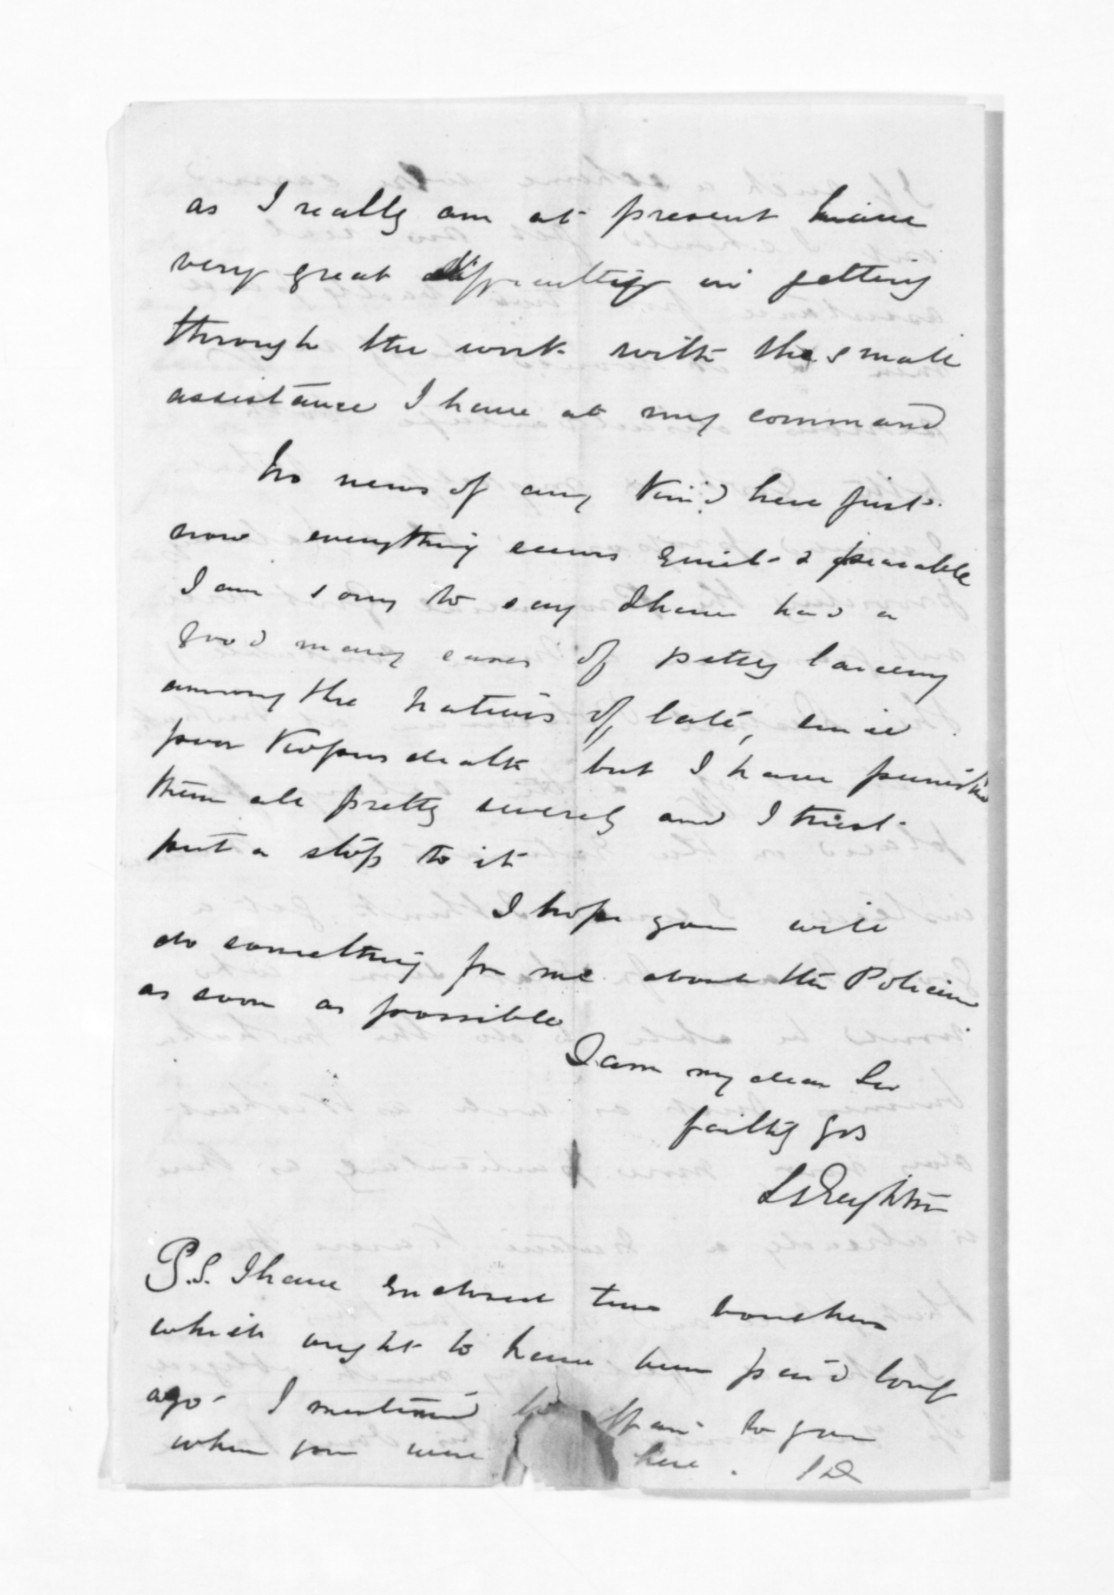 as I really am at present have
very great difficulty in getting
through the work with the small
assistance I have at my command
No news of any Kind here just
now everything seems quiet & peaceable
I am sorry to say I have had a
good many cases of petty larceny
among the natives of late, since
poor death but I have punished
them all pretty severely and I trust
put a stop to it
I hope you will
do something for me about the Policeman
as soon as possible
I am my dear Sir
faithy yrs
P.S. I have enclosed two vouchers
which ought to have been paid long
ago - I mentioned to you
when you were here.